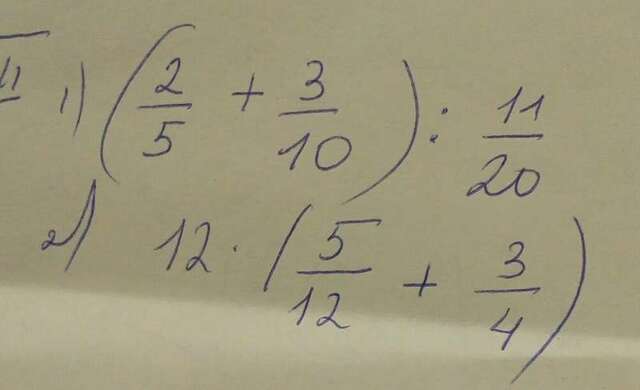 1) (2/5 + 3/10) : 11/20
2) 12 · (5/12 + 3/4)